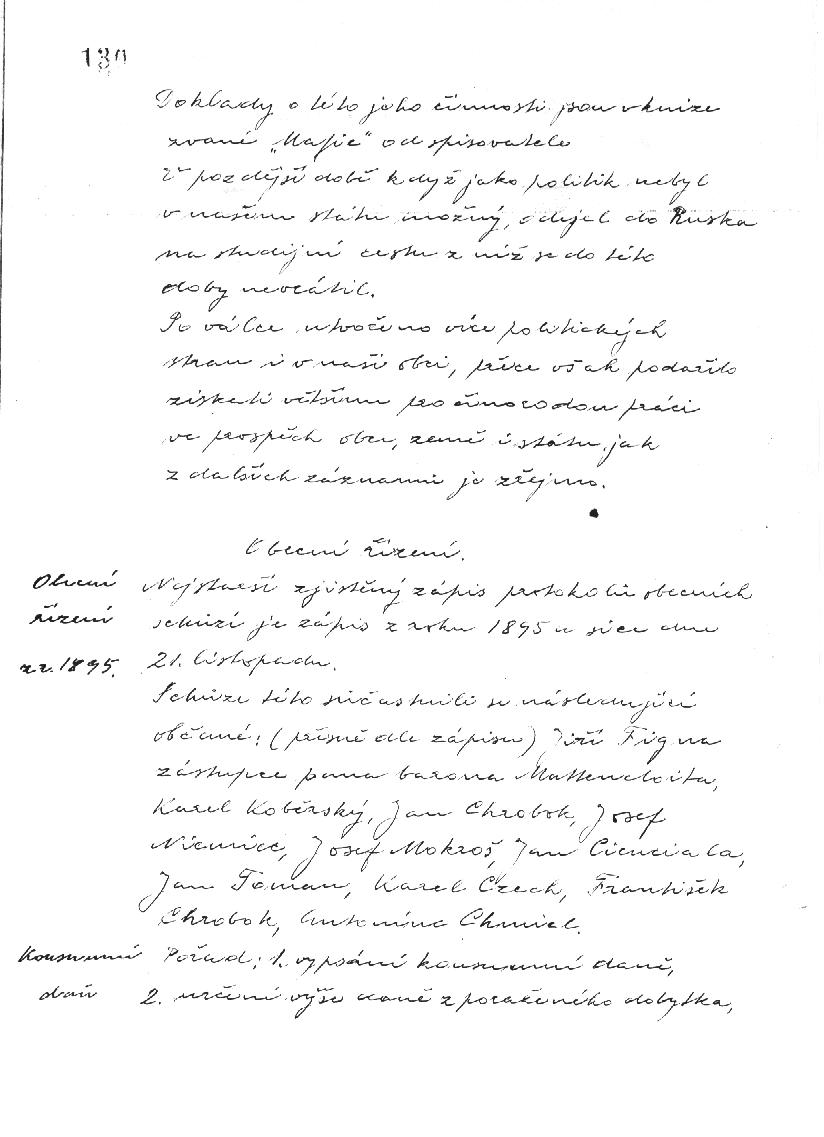 130
Doklady o této jeho činnosti jsou v knize
zvané „Mafie" od spisovatele
V pozdější době když jako politik nebyl
v našem státu možný, odejel do Ruska
na studijní cestu z níž se do této
doby nevrátil.
Po válce utvořeno více politických
stran i v naší obci, přece však podařilo
získati většinu pro činorodou práci
ve prospěch obce, země i státu jak
z dalších záznamů je zřejmo.
Obecní řízení.
Obecní řízení z r. 1895.
Nejstarší zjistěný zápis protokolů obecních
schůzí je zápis z roku 1895 a sice dne
21. listopadu.
Schůze této súčastnili se následující
občané: (přesně dle zápisu) Jiří Figna
zástupce pana barona Mattencloita,
Karel Koběrský, Jan Chrobok, Josef
Niemiec, Josef Mokroš, Jan Cienciala,
Jan Toman, Karel Czech, František
Chrobok, Antonína Chmiel.
Konsumní daň
Pořad: 1. vypsání konsumní daně,
2. určení výše daně z poraženého dobytka,